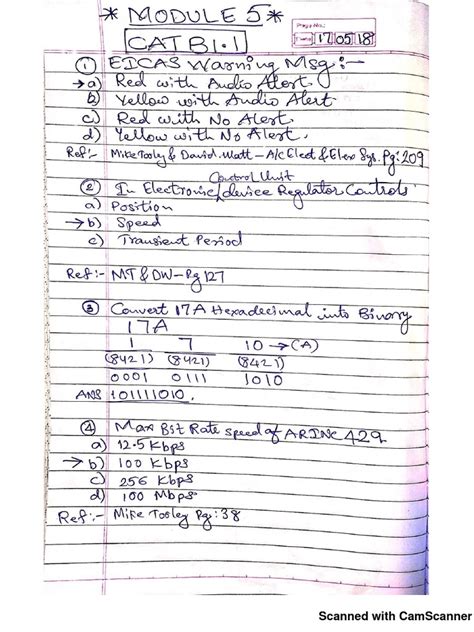 * MODULE 5 *
Page No.:
17 05 18
CAT B1.1
① EICAS Warning Msg :-
→ a) Red with Audio Alert
b) Yellow with Audio Alert
c) Red with No Alert
d) Yellow with No Alert.
Ref:- Mike Tooly & David Watt - A/C Elect & Elex Sys. Pg: 209
Control Unit
② In Electronic device Regulator Controls
a) Position
→ b) Speed
c) Transient Period
Ref:- MT & DW - Pg 127
③ Convert 17A Hexadecimal into Binary
17A
1 7 10 → (A)
(8421) (8421) (8421)
0001 0111 1010
ANS 101111010.
④ Max Bit Rate speed of ARINC 429
a) 12.5 Kbps
→ b) 100 Kbps
c) 256 Kbps
d) 100 Mbps
Ref:- Mike Tooley Pg: 38
Scanned with CamScanner